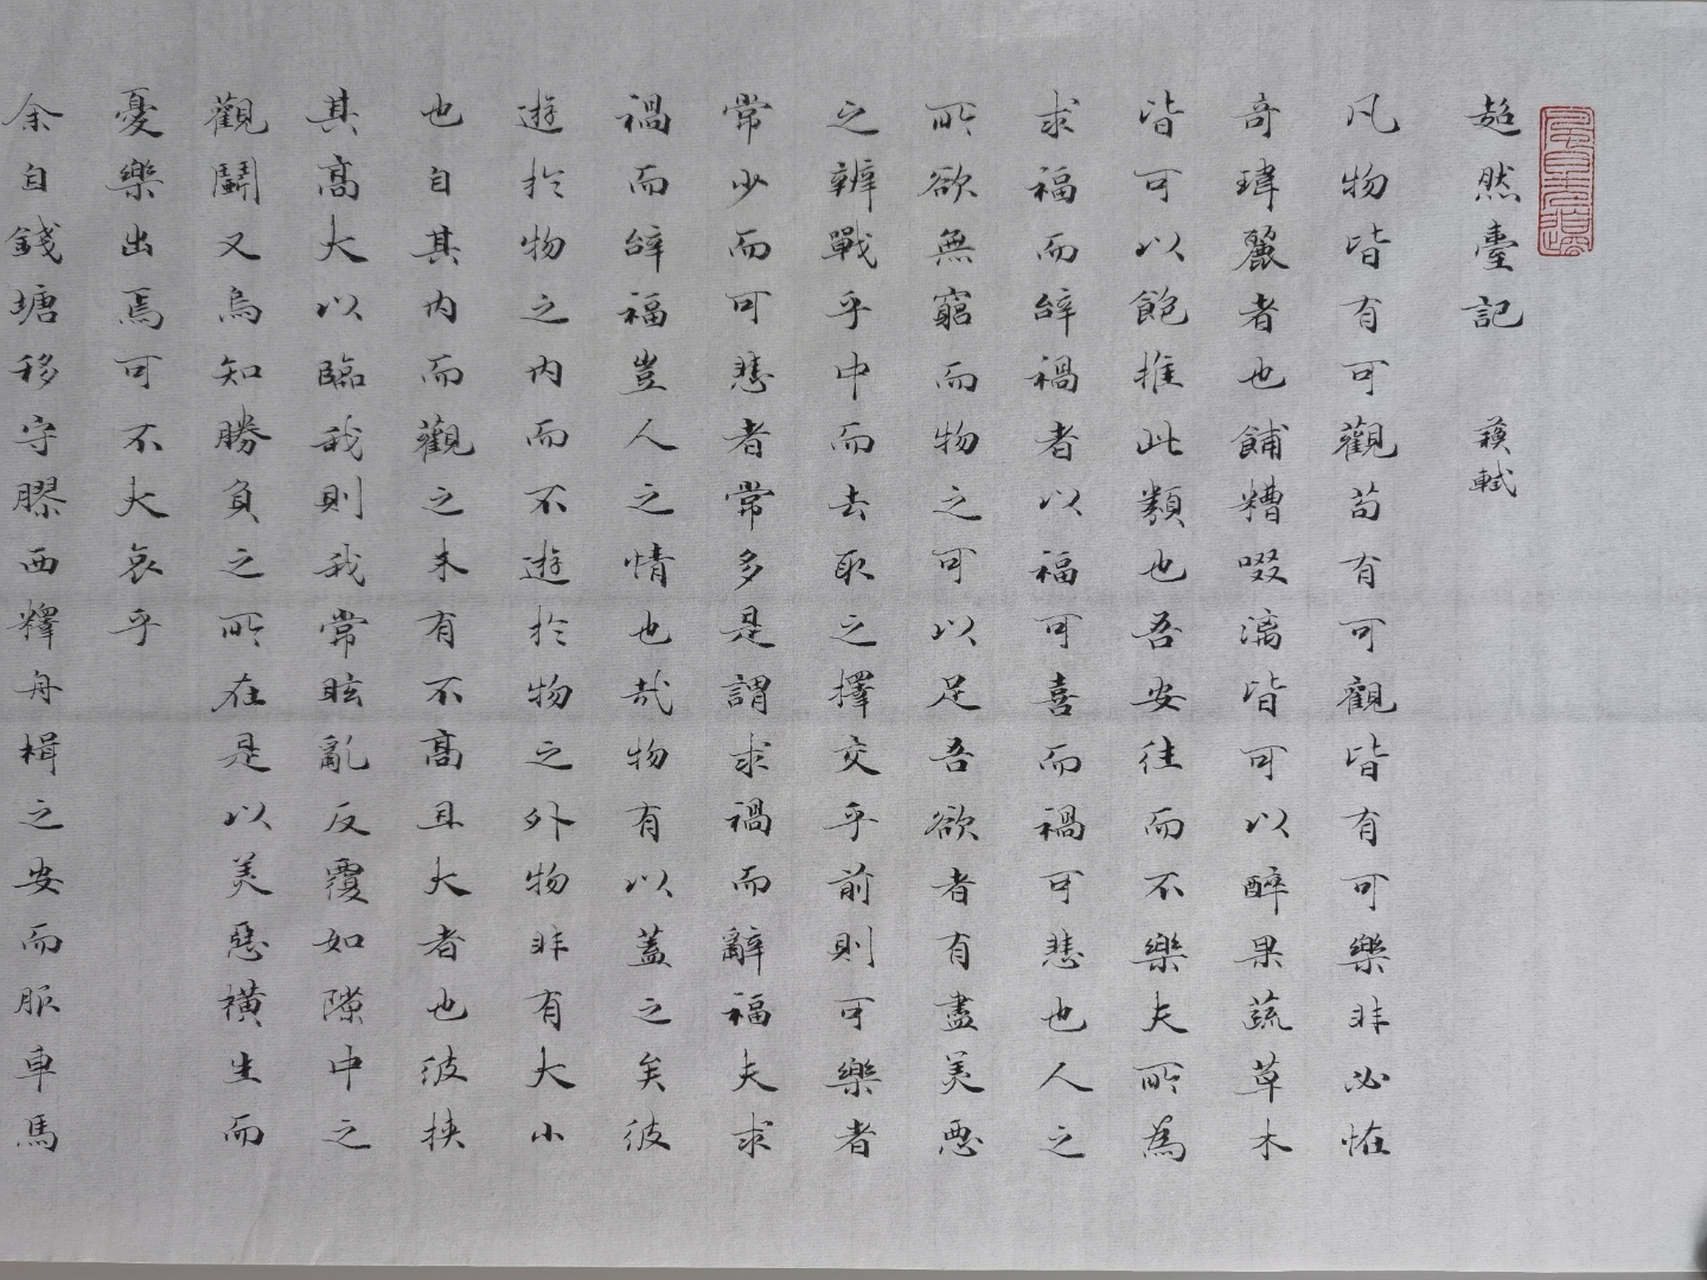 超然臺記 蘇軾
凡物皆有可觀苟有可觀皆有可樂非必恠
奇瑋麗者也餔糟啜漓皆可以醉果蔬草木
皆可以飽推此類也吾安往而不樂夫所為
求福而辭禍者以福可喜而禍可悲也人之
所欲無窮而物之可以足吾欲者有盡美惡
之辨戰乎中而去取之擇交乎前則可樂者
常少而可悲者常多是謂求禍而辭福夫求
禍而辭福豈人之情也哉物有以蓋之矣彼
遊於物之內而不遊於物之外物非有大小
也自其內而觀之未有不高且大者也彼挾
其高大以臨我則我常眩亂反覆如隙中之
觀鬭又烏知勝負之所在是以美惡橫生而
憂樂出焉可不大哀乎
余自錢塘移守膠西釋舟楫之安而服車馬